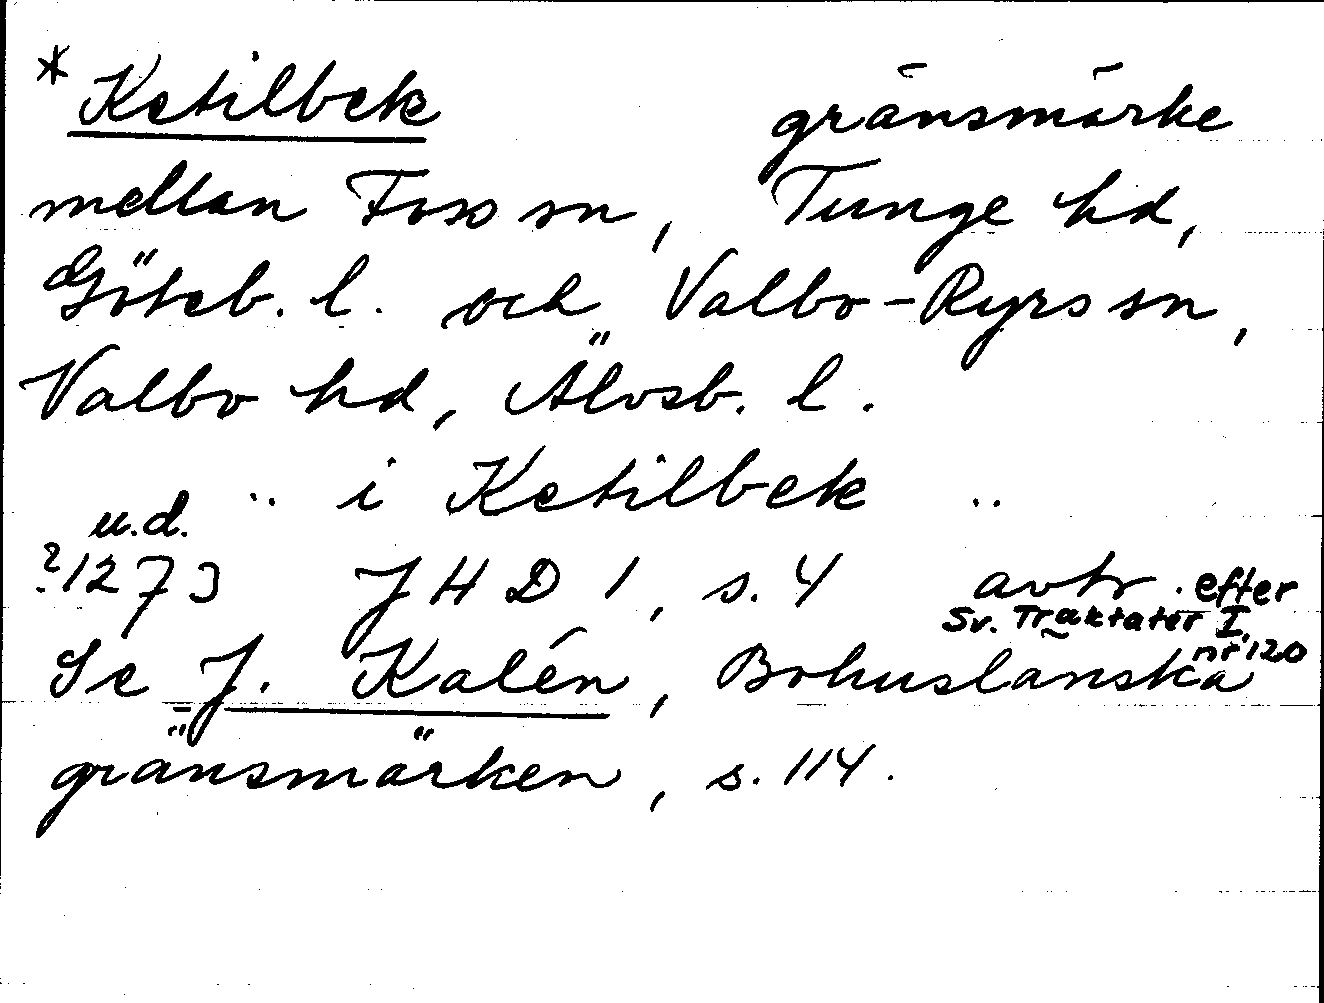 * Ketilbek gränsmärke
mellan Foss sn, Tunge hd,
Göteb. l. och Valbo-Ryrs sn,
Valbo hd, Älvsb. l.
.. i Ketilbek ..
u.d.
?1273 JHD 1, s. 4 avtr. efter
Sv. Traktater I,
nr 120
Se J. Kalén, Bohuslänska
gränsmärken, s. 114.